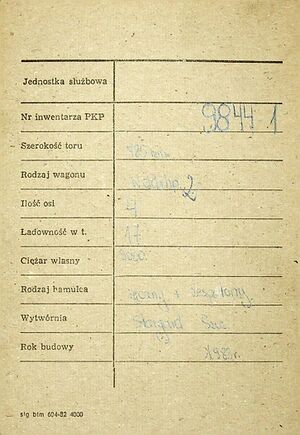 Jednostka służbowa
Nr inwentarza PKP 9844 1
Szerokość toru
Rodzaj wagonu 2
Ilość osi 4
Ładowność w t. 17
Ciężar własny
Rodzaj hamulca ręczny + zespolony
Wytwórnia
Rok budowy
stg btm 604-82 4000